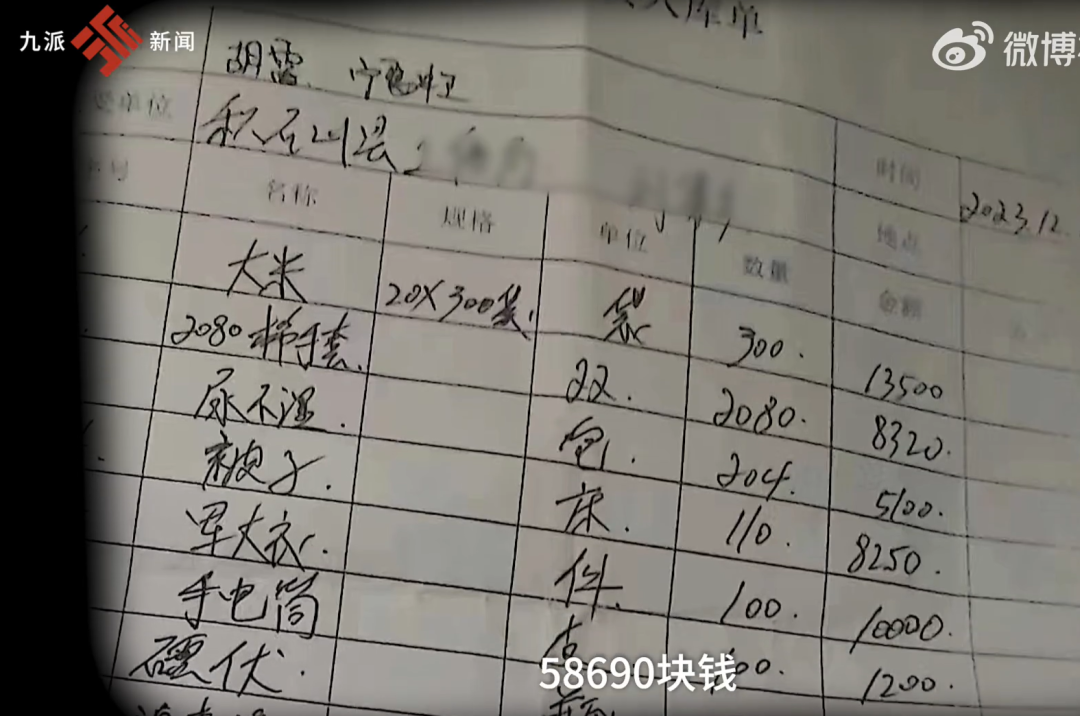 九派 新闻
微博
入库单
胡雷、宁
受单位 积石山县 时间 2023.12.
名称 规格 单位 数量 金额 地点
大米 20X300袋. 袋 300. 13500
2080 棉手套. 双. 2080. 8320.
尿不湿. 包. 204. 5100.
被子. 床. 110. 8250.
军大衣. 件. 100. 10000.
手电筒 1200.
58690块钱